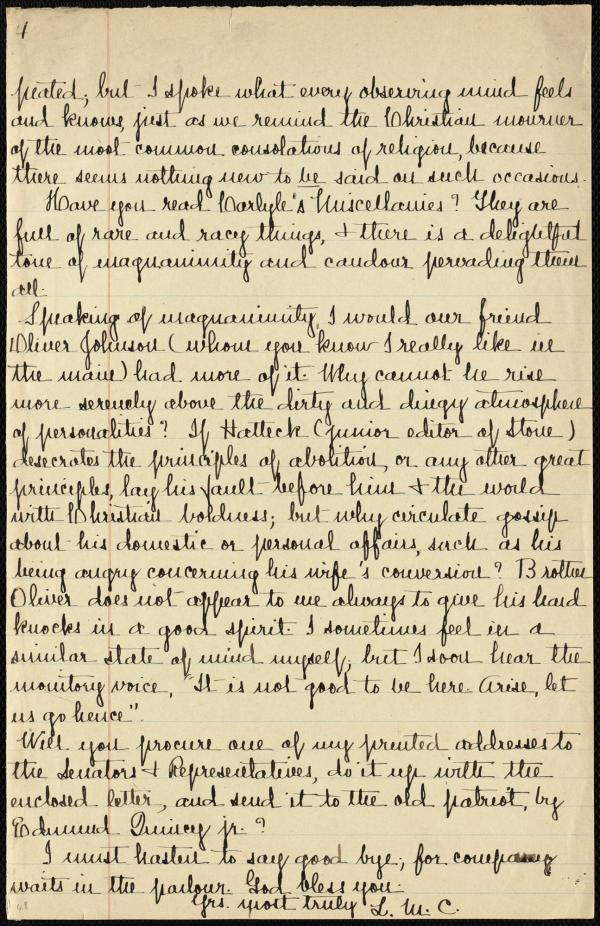 4
peated; but I spoke what every observing mind feels
and knows, just as we remind the Christian mourner
of the most common consolations of religion, because
there seems nothing new to be said on such occasions.
Have you read Carlyle's Miscellanies? They are
full of rare and racy things, & there is a delightful
tone of magnanimity and candour pervading them
all.
Speaking of magnanimity, I would our friend
Oliver Johnson (whom you know I really like in
the main) had more of it. Why cannot he rise
more serenely above the dirty and dingy atmosphere
of personalities? If Halleck (junior editor of Stone)
desecrates the principles of abolition, or any other great
principles, lay his fault before him & the world
with Christian boldness; but why circulate gossip
about his domestic or personal affairs, such as his
being angry concerning his wife's conversion? Brother
Oliver does not appear to me always to give his hard
knocks in a good spirit. I sometimes feel in a
similar state of mind myself; but I soon hear the
monitory voice, "It is not good to be here. Arise, let
us go hence".
Will you procure one of my printed addresses to
the Senators & Representatives, do it up with the
enclosed letter, and send it to the old patriot, by
Edmund Quincy jr.?
I must hasten to say good bye; for company
waits in the parlour. God bless you.
Yrs. most truly L. M. C.